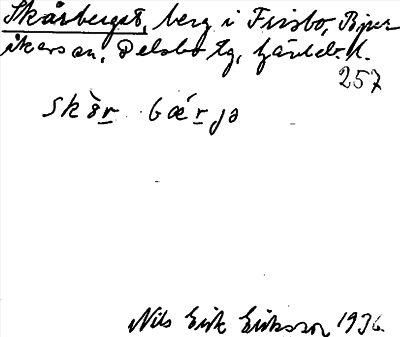 Skårberget, berg i Frisbo, Bjur
åkers sn, Delsbo tg, Gävleb. l.
257
Skår bǽrjə
Nils Erik Eriksson 1936.